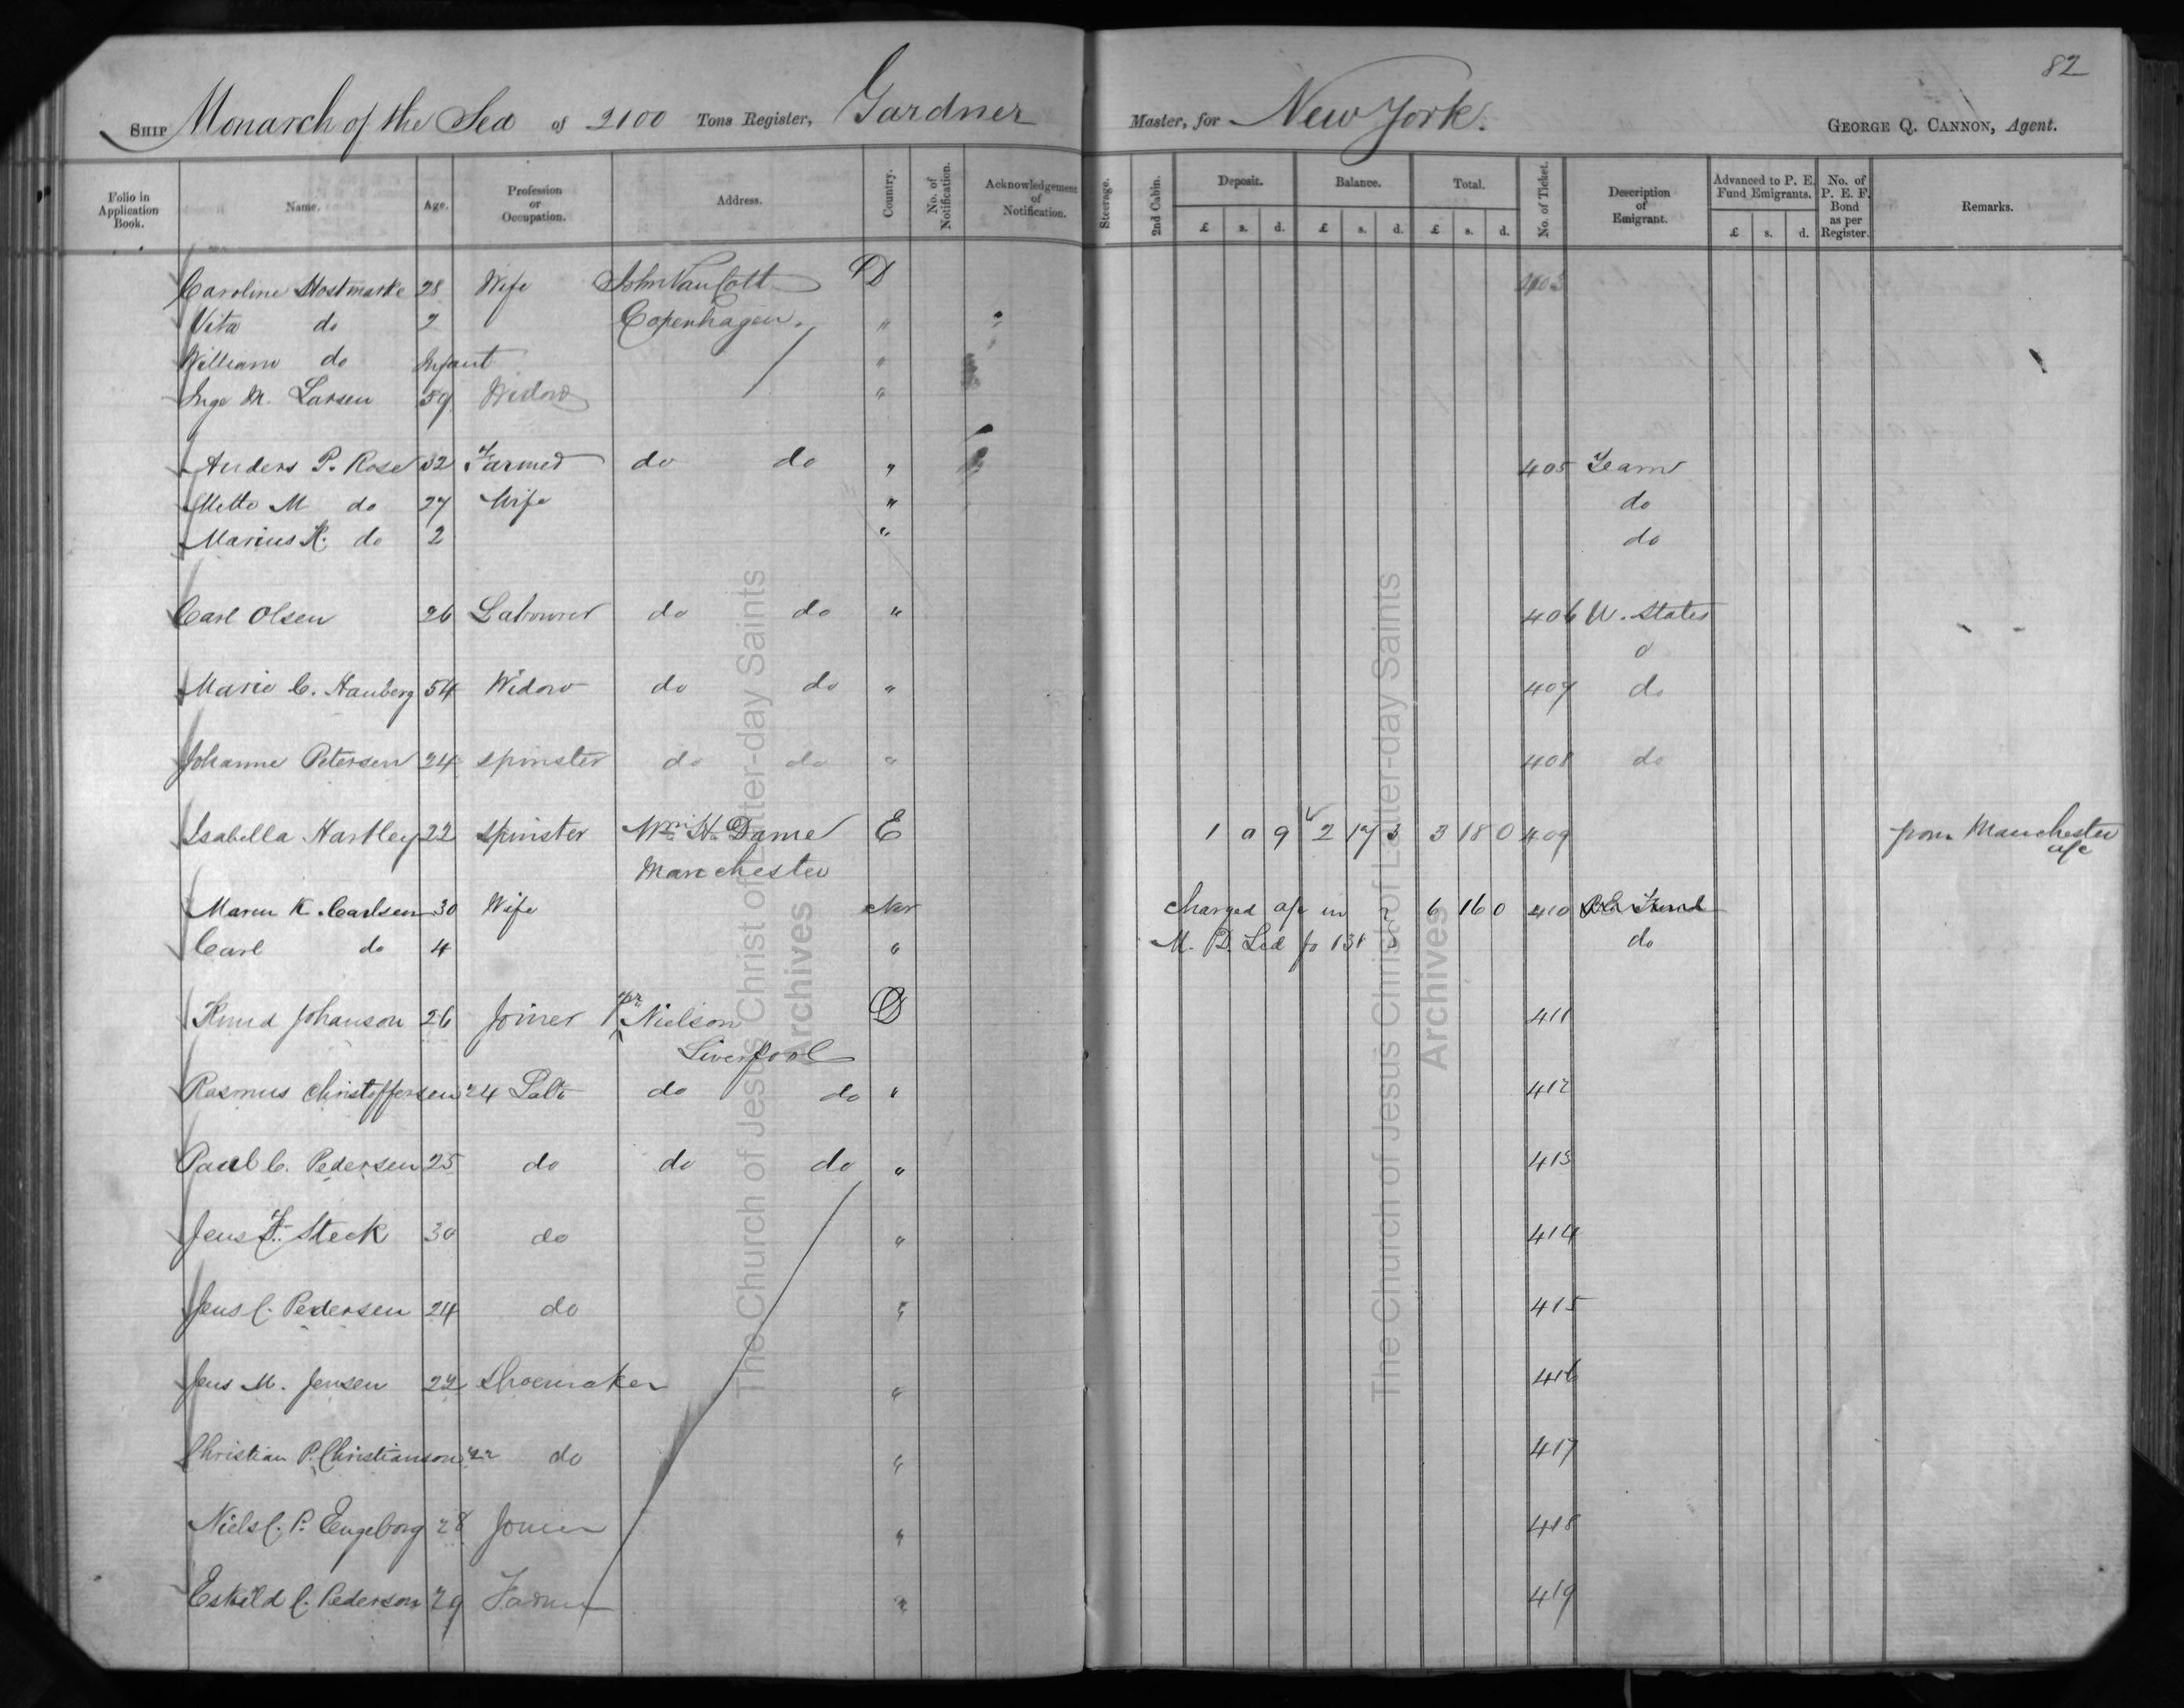 82
SHIP Monarch of the Sea of 2100 Tons Register, Gardner Master, for New York. GEORGE Q. CANNON, Agent.
Folio in Application Book. Name. Age. Profession or Occupation. Address. Country. No. of Notification. Acknowledgement of Notification. Steerage. 2nd Cabin. Deposit. Balance. Total. No. of Ticket. Description of Emigrant. Advanced to P. E. Fund Emigrants. No. of P. E. F. Bond as per Register. Remarks.
£ s. d. £ s. d. £ s. d. £ s. d.
Caroline Hostmarke 28 Wife John Van Cott D
Vita do 2 Copenhagen. "
William do Infant "
Inge M. Larsen 59 Widow "
Anders P. Rose 32 Farmer do do " 405 Team
Mette M do 27 Wife " do
Marius K. do 2 " do
Carl Olsen 26 Labourer do do " 406 U. States
Marie C. Hauberg 54 Widow do do " 407 do
Johanne Petersen 24 Spinster do do " 408 do
Isabella Hartley 22 Spinster Wm. H. Dame E 1 0 9 2 17 3 3 18 0 409 from Manchester a/c
Manchester
Maren K. Carlsen 30 Wife Nor charged a/c in 6 16 0 410 P.E. Fund
Carl do 4 " M. P. Led fo 131 do
Knud Johanson 26 Joiner pr Nielson D 411
Liverpool
Rasmus Christoffersen 24 do do " 412
Paul C. Pedersen 25 do do do " 413
Jens F. Steck 30 do " 414
Jens C. Pedersen 24 do " 415
Jens M. Jensen 22 Shoemaker " 416
Christian P. Christianson 22 do " 417
Niels C. P. Engeborg 28 Joiner " 418
Eskild C. Pederson 29 Farmer " 419
The Church of Jesus Christ of Latter-day Saints
Archives
The Church of Jesus Christ of Latter-day Saints
Archives